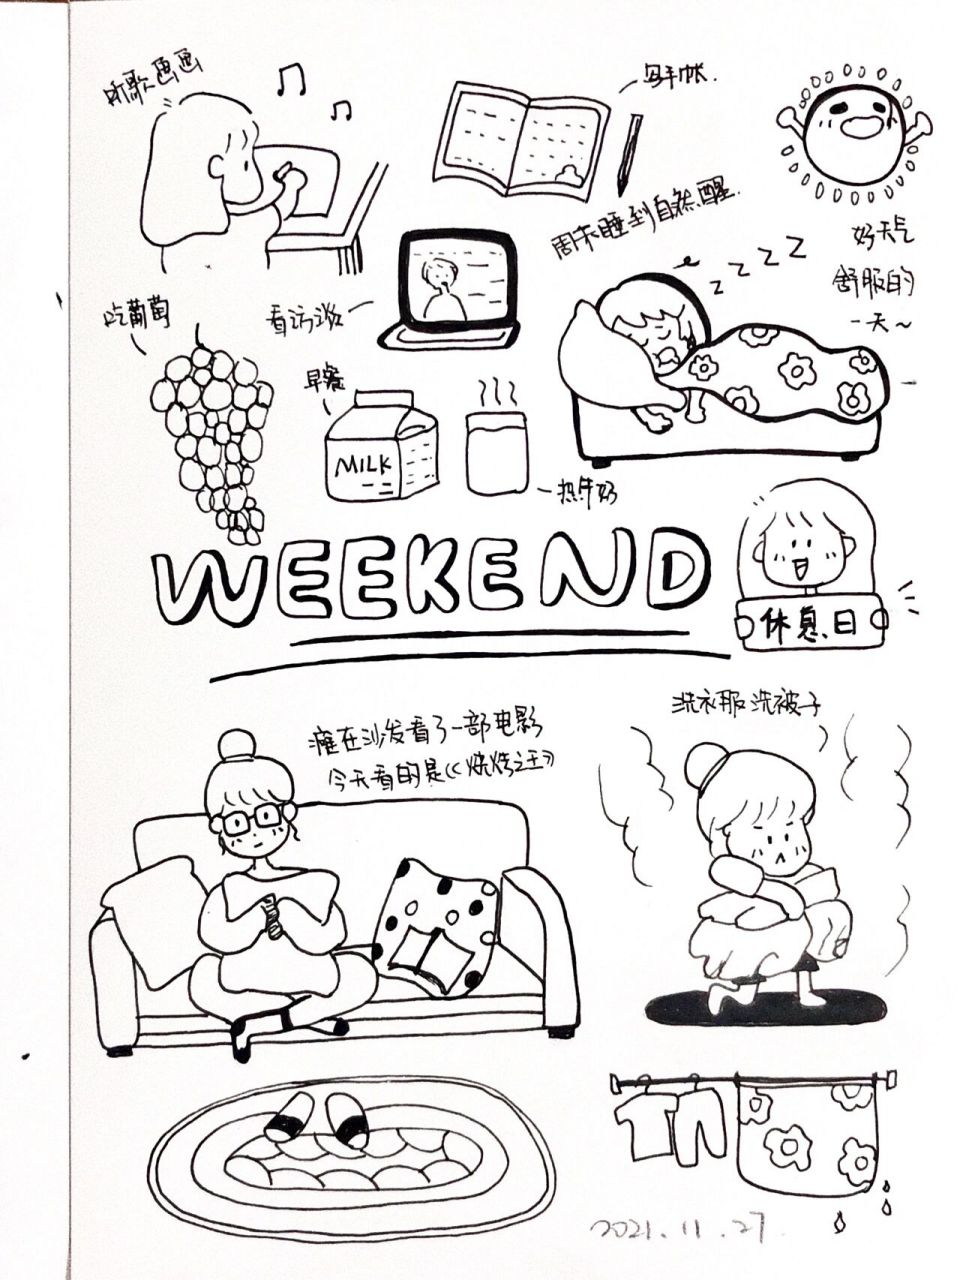 听歌画画
写手帐.
周末睡到自然醒.
好天气
舒服的
一天~
吃葡萄
看访谈
早餐
MILK
热牛奶
zzzzz
WEEKEND
休息日
瘫在沙发看了一部电影
今天看的是《烧烤之王》
洗衣服洗被子
2021.11.27